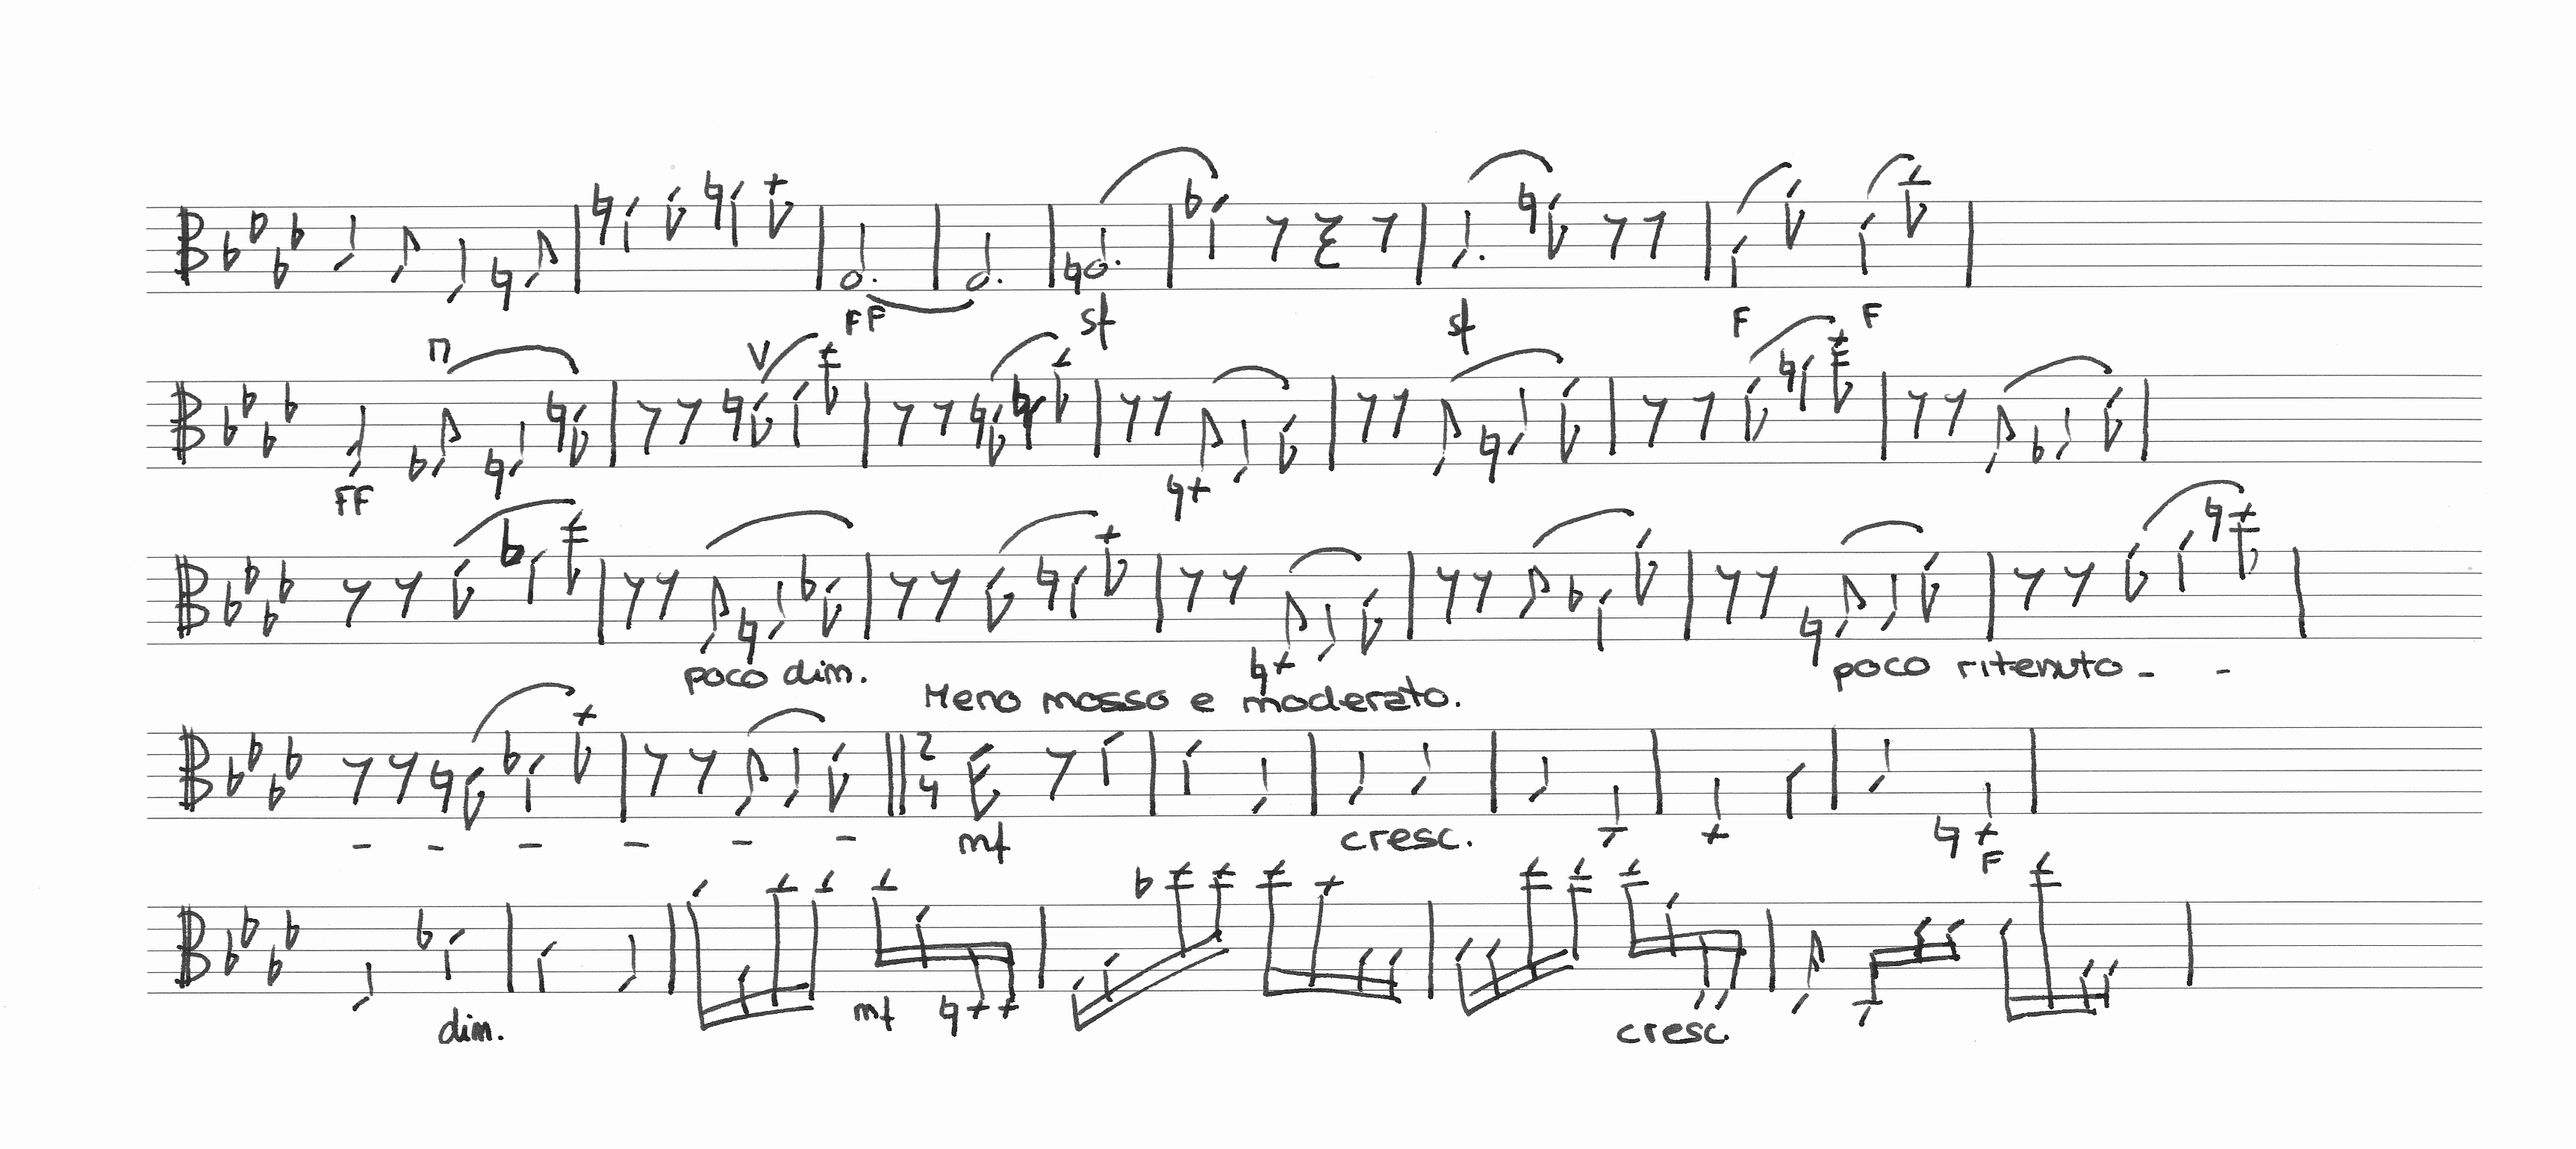 FF sf sf F F
FF
poco dim. poco ritenuto - -
Meno mosso e moderato.
- - - - - - 2 4 mf cresc. F
dim. mf cresc.